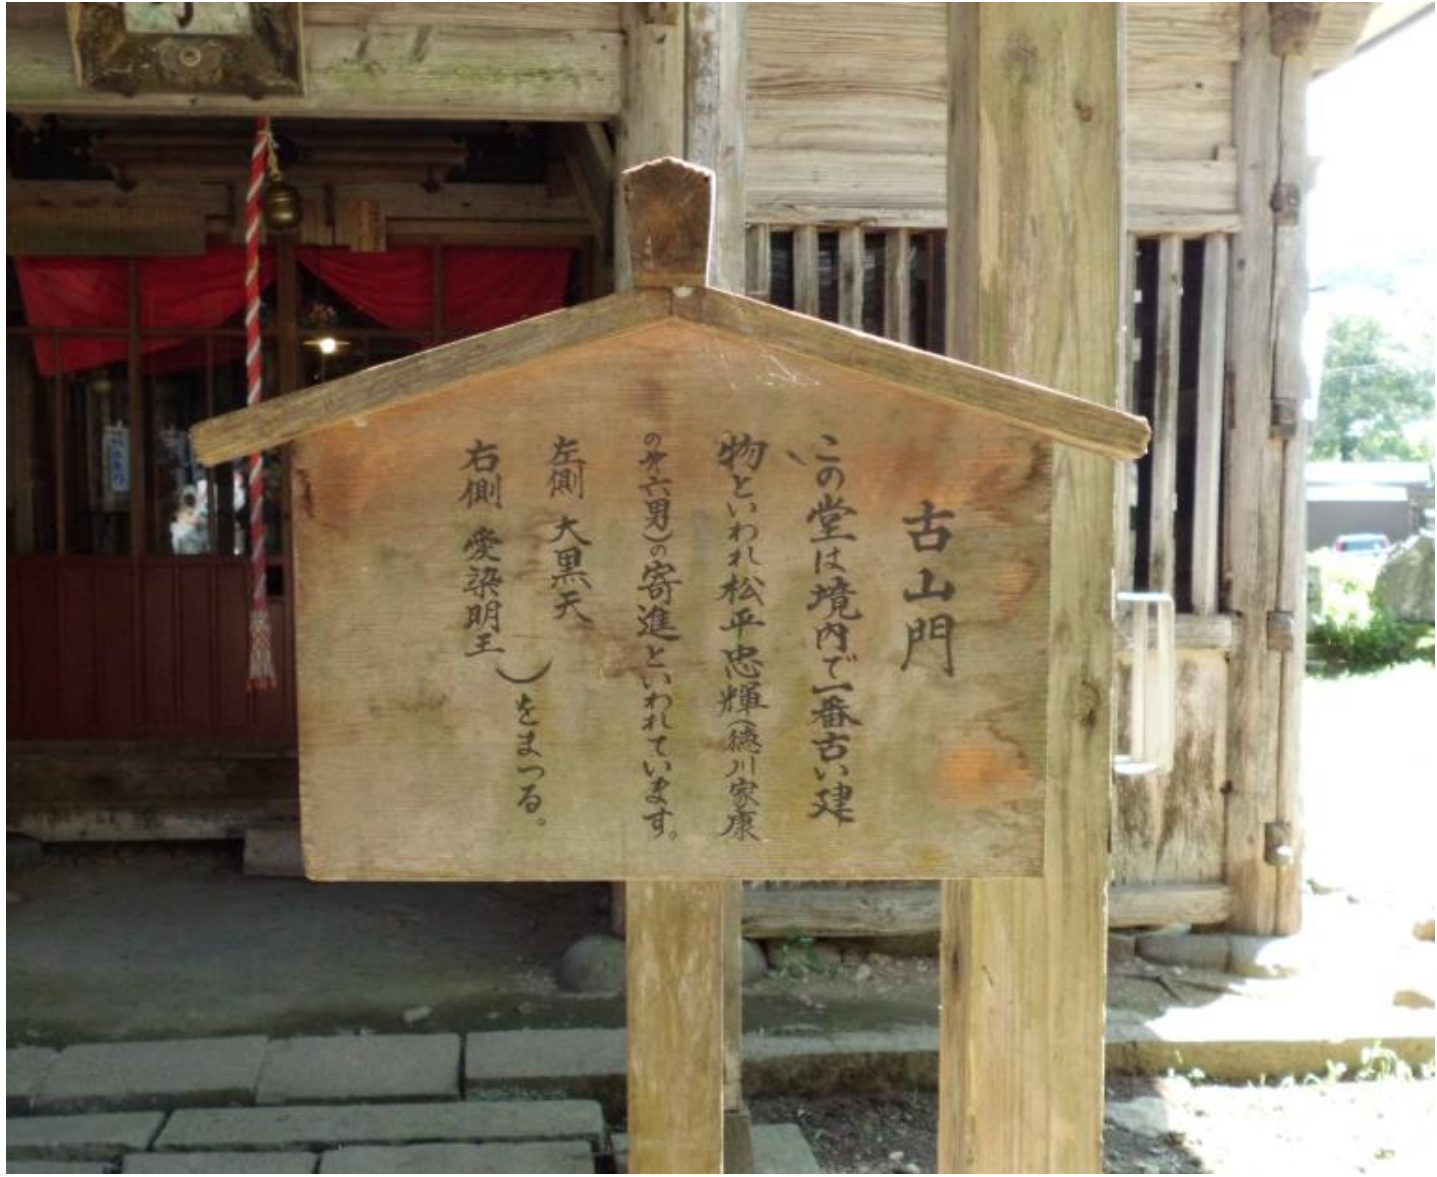 古山門
この堂は境内で一番古い建
物といわれ松平忠輝(徳川家康
の第六男)の寄進といわれています。
左側 大黒天
右側 愛染明王
をまつる。